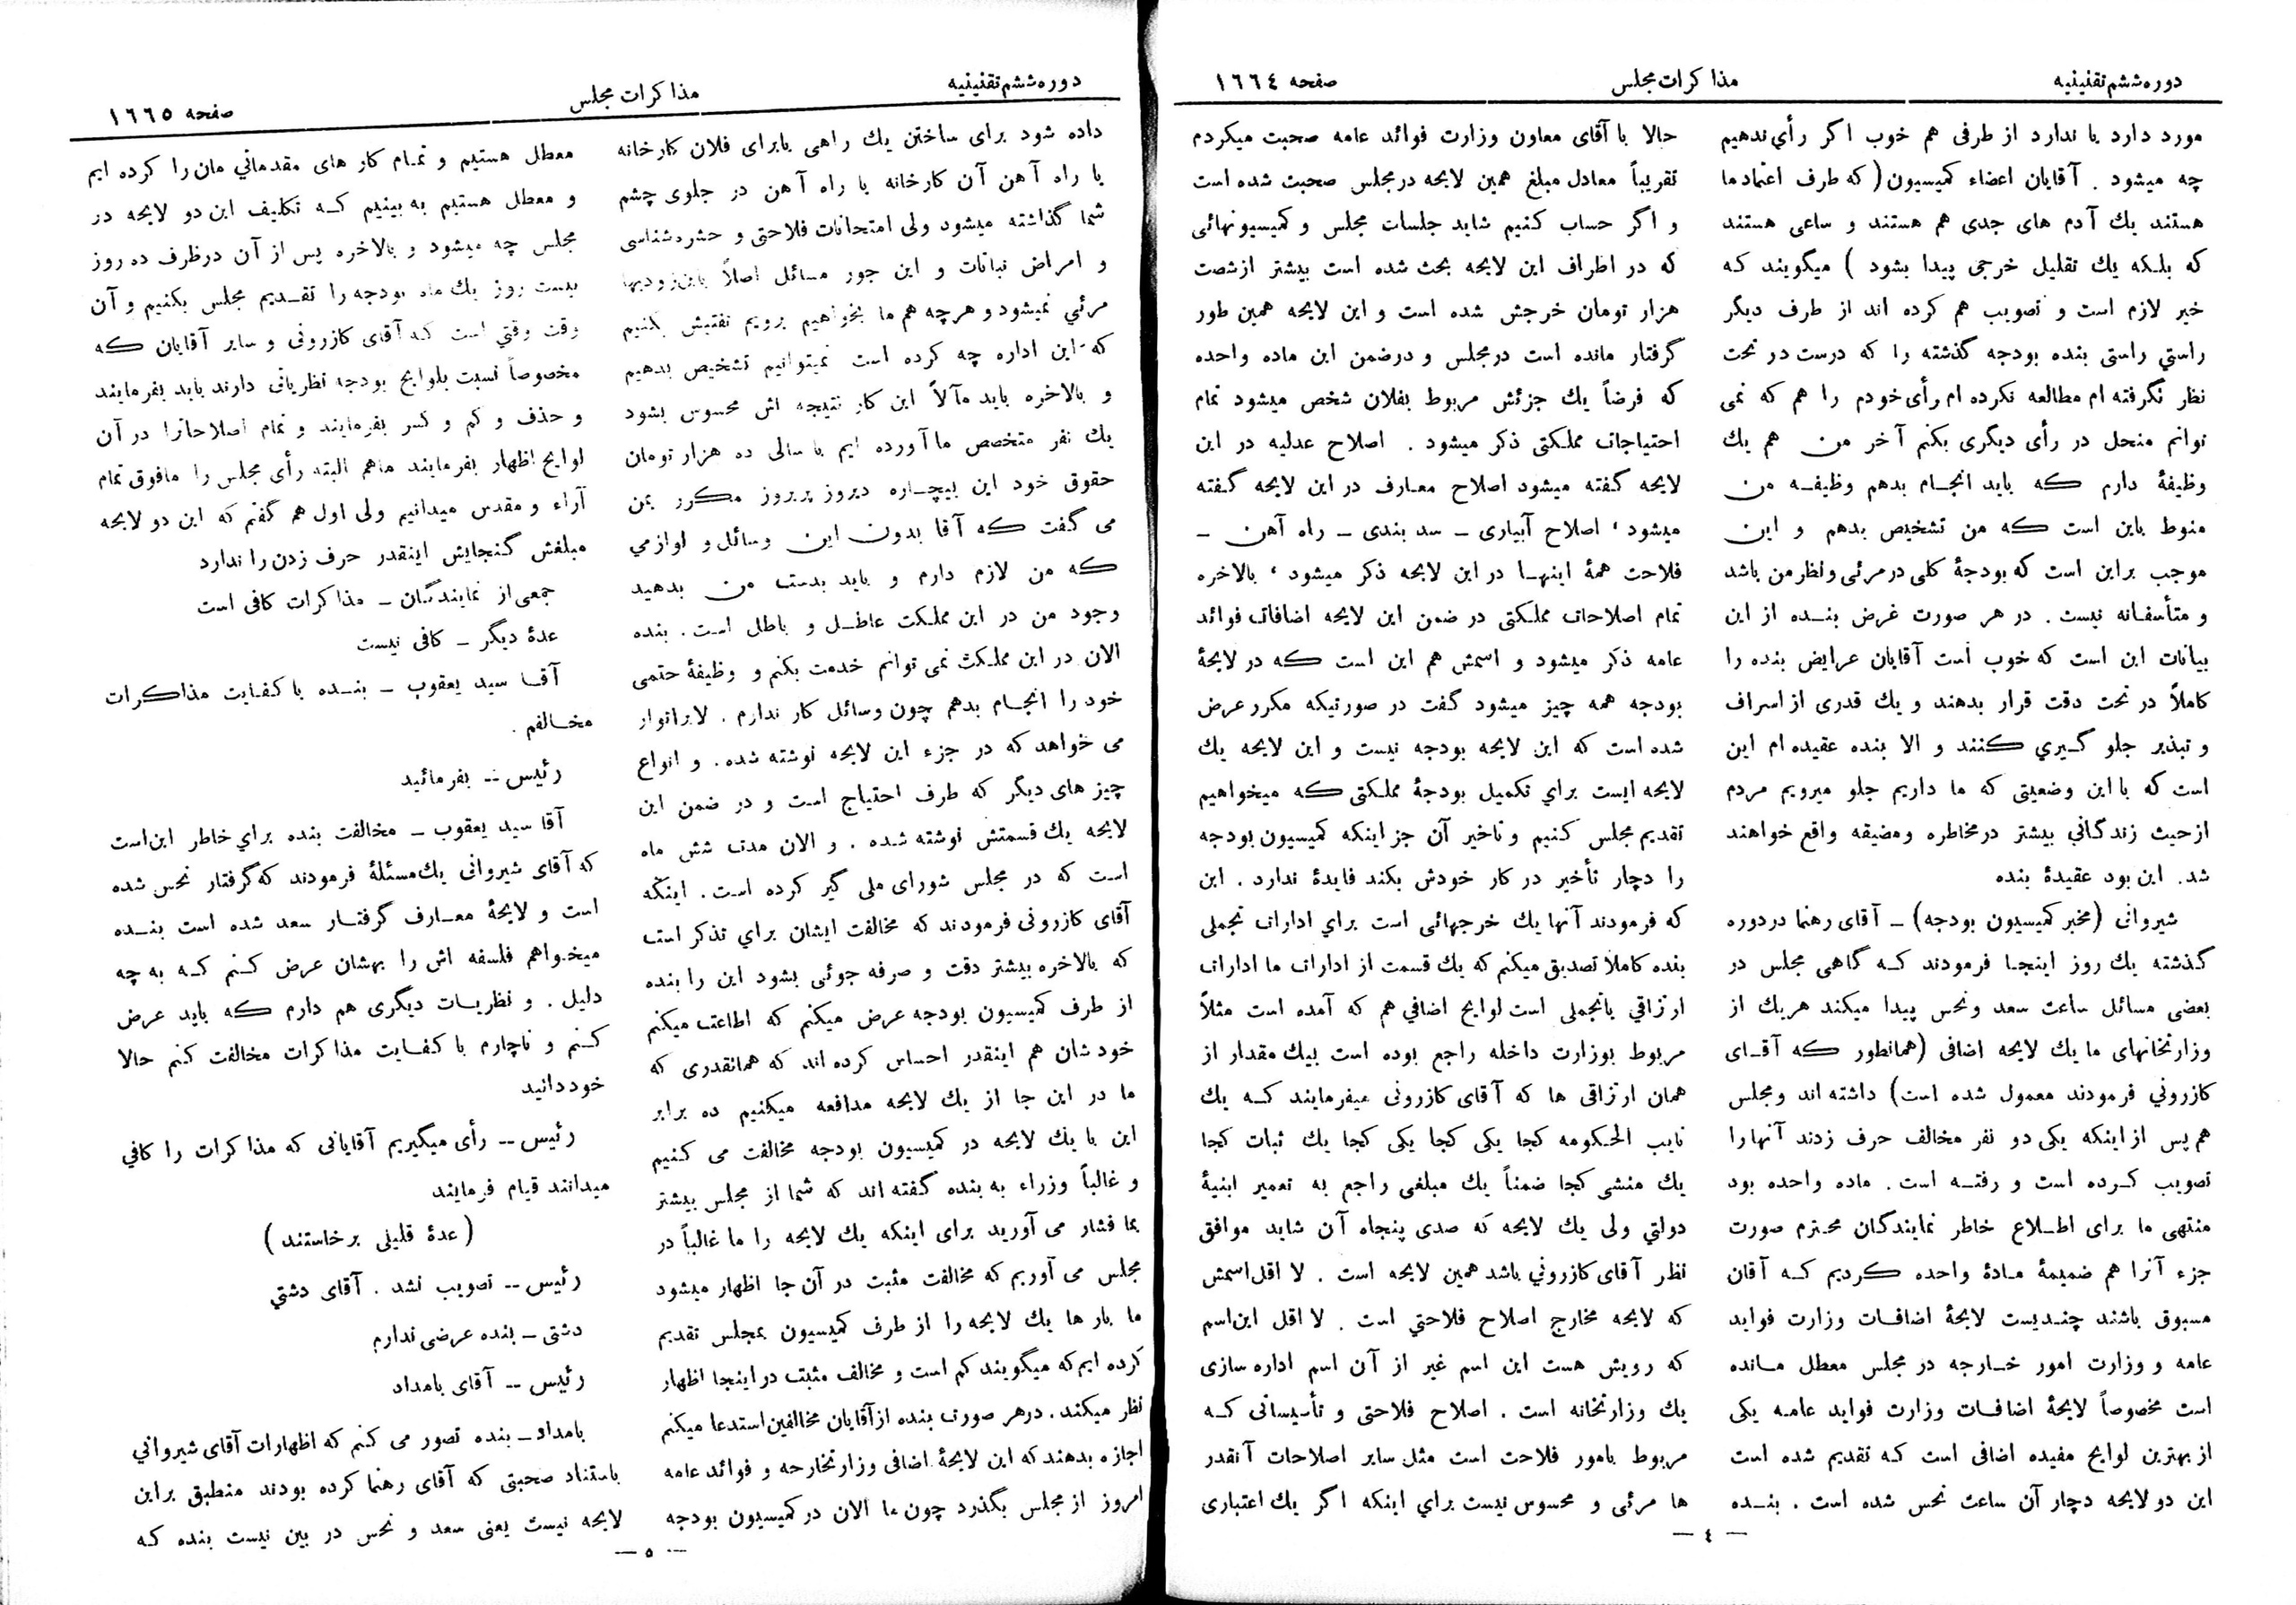 دوره ششم تقنینیه
مذاکرات مجلس
صفحه ١٦٦٤
مورد دارد یا ندارد از طرفی هم خوب اگر رأی ندهیم
چه میشود . آقایان اعضاء کمیسیون ( که طرف اعتماد ما
هستند یك آدم های جدی هم هستند و ساعی هستند
که بلکه یك تقلیل خرجی پیدا بشود ) میگویند که
خیر لازم است و تصویب هم کرده اند از طرف دیگر
راستي راستی بنده بودجه گذشته را که درست در تحت
نظر نگرفته ام مطالعه نکرده ام رأی خودم را هم که نمی
توانم منحل در رأی دیگری بکنم آخر من هم یك
وظیفهٔ دارم که باید انجام بدهم وظیفه من
منوط باین است که من تشخیص بدهم و این
موجب براین است که بودجهٔ کلی در مرئی و نظر من باشد
و متأسفانه نیست . در هر صورت غرض بنده از این
بیانات این است که خوب است آقایان عرایض بنده را
کاملاً در تحت دقت قرار بدهند و یك قدری از اسراف
و تبذیر جلو گیري کنند و الا بنده عقیده ام این
است که با این وضعیتی که ما داریم جلو میرویم مردم
از حیث زندگاني بیشتر در مخاطره و مضیقه واقع خواهند
شد. این بود عقیدهٔ بنده
شیروانی (مخبر کمیسیون بودجه) ــ آقای رهنما در دوره
گذشته یك روز اینجا فرمودند که گاهی مجلس در
بعضی مسائل ساعت سعد و نحس پیدا میکند هریك از
وزارتخانهای ما یك لایحه اضافی (همانطور که آقای
کازروني فرمودند معمول شده است) داشته اند و مجلس
هم پس از اینکه یکی دو نفر مخالف حرف زدند آنها را
تصویب کرده است و رفته است . ماده واحده بود
منتهی ما برای اطلاع خاطر نمایندگان محترم صورت
جزء آنرا هم ضمیمهٔ مادهٔ واحده کردیم که آقان
مسبوق باشند چندیست لایحهٔ اضافات وزارت فواید
عامه و وزارت امور خارجه در مجلس معطل مانده
است مخصوصاً لایحهٔ اضافات وزارت فواید عامه یکی
از بهترین لوایح مفیده اضافی است که تقدیم شده است
این دو لایحه دچار آن ساعت نحس شده است . بنده
حالا با آقای معاون وزارت فوائد عامه صحبت میکردم
تقریباً معادل مبلغ همین لایحه در مجلس صحبت شده است
و اگر حساب کنیم شاید جلسات مجلس و کمیسیونهائی
که در اطراف این لایحه بحث شده است بیشتر از شصت
هزار تومان خرجش شده است و این لایحه همین طور
گرفتار مانده است در مجلس و در ضمن این ماده واحده
که فرضاً یك جزئش مربوط بفلان شخص میشود تمام
احتیاجات مملکتی ذکر میشود . اصلاح عدلیه در این
لایحه گفته میشود اصلاح معارف در این لایحه گفته
میشود ، اصلاح آبیاری ــ سد بندی ــ راه آهن ــ
فلاحت همهٔ اینها در این لایحه ذکر میشود ، بالاخره
تمام اصلاحات مملکتی در ضمن این لایحه اضافات فوائد
عامه ذکر میشود و اسمش هم این است که در لایحهٔ
بودجه همه چیز میشود گفت در صورتیکه مکرر عرض
شده است که این لایحه بودجه نیست و این لایحه یك
لایحه ایست براي تکمیل بودجهٔ مملکتی که میخواهیم
تقدیم مجلس کنیم و تاخیر آن جز اینکه کمیسیون بودجه
را دچار تأخیر در کار خودش بکند فایدهٔ ندارد . این
که فرمودند آنها یك خرجهائی است براي ادارات تجملی
بنده کاملا تصدیق میکنم که یك قسمت از ادارات ما ادارات
ارزاقي یا تجملی است لوایح اضافي هم که آمده است مثلاً
مربوط بوزارت داخله راجع بوده است بیك مقدار از
همان ارزاقی ها که آقای کازرونی میفرمایند که یك
نایب الحکومه کجا یکی کجا یکی کجا یك ثبات کجا
یك منشی کجا ضمناً یك مبلغی راجع به تعمیر ابنیهٔ
دولتي ولی یك لایحه که صدی پنجاه آن شاید موافق
نظر آقای کازروني باشد همین لایحه است . لا اقل اسمش
که لایحه مخارج اصلاح فلاحتي است . لا اقل این اسم
که رویش هست این اسم غیر از آن اسم اداره سازی
یك وزارتخانه است . اصلاح فلاحتی و تأسیساتی که
مربوط بامور فلاحت است مثل سایر اصلاحات آنقدر
ها مرئی و محسوس نیست براي اینکه اگر یك اعتباری
— ٤ —
دوره ششم تقنینیه
مذاکرات مجلس
صفحه ١٦٦٥
داده شود برای ساختن یك راهی یا برای فلان کارخانه
یا راه آهن آن کارخانه یا راه آهن در جلوی چشم
شما گذاشته میشود ولی امتحانات فلاحتی و حشره شناسی
و امراض نباتات و این جور مسائل اصلاً باین زودیها
مرئي نمیشود و هرچه هم ما بخواهیم برویم تفتیش بکنیم
که این اداره چه کرده است نمیتوانیم تشخیص بدهیم
و بالاخره باید مآلاً این کار نتیجه اش محسوس بشود
یك نفر متخصص ما آورده ایم با سالی ده هزار تومان
حقوق خود این بیچاره دیروز پریروز مکرر بمن
می گفت که آقا بدون این وسائل و لوازمي
که من لازم دارم و باید بدست من بدهید
وجود من در این مملکت عاطل و باطل است . بنده
الان در این مملکت نمی توانم خدمت بکنم و وظیفهٔ حتمی
خود را انجام بدهم چون وسائل کار ندارم . لابراتوار
می خواهد که در جزء این لایحه نوشته شده . و انواع
چیز های دیگر که طرف احتیاج است و در ضمن این
لایحه یك قسمتش نوشته شده . و الان مدت شش ماه
است که در مجلس شورای ملی گیر کرده است . اینکه
آقای کازرونی فرمودند که مخالفت ایشان براي تذکر است
که بالاخره بیشتر دقت و صرفه جوئی بشود این را بنده
از طرف کمیسیون بودجه عرض میکنم که اطاعت میکنم
خودشان هم اینقدر احساس کرده اند که همانقدری که
ما در این جا از یك لایحه مدافعه میکنیم ده برابر
این با یك لایحه در کمیسیون بودجه مخالفت می کنیم
و غالباً وزراء به بنده گفته اند که شما از مجلس بیشتر
بما فشار می آورید برای اینکه یك لایحه را ما غالباً در
مجلس می آوریم که مخالفت مثبت در آن جا اظهار میشود
ما بار ها یك لایحه را از طرف کمیسیون بمجلس تقدیم
کرده ایم که میگویند کم است و مخالف مثبت در اینجا اظهار
نظر میکند . درهر صورت بنده از آقایان مخالفین استدعا میکنم
اجازه بدهند که این لایحهٔ اضافی وزارتخارجه و فوائد عامه
امروز از مجلس بگذرد چون ما الان در کمیسیون بودجه
معطل هستیم و تمام کار های مقدماتي مان را کرده ایم
و معطل هستیم به بینیم که تکلیف این دو لایحه در
مجلس چه میشود و بالاخره پس از آن درظرف ده روز
بیست روز یك ماه بودجه را تقدیم مجلس بکنیم و آن
وقت وقتي است که آقای کازرونی و سایر آقایان که
مخصوصاً نسبت بلوایح بودجه نظریاتی دارند باید بفرمایند
و حذف و کم و کسر بفرمایند و تمام اصلاحاترا در آن
لوایح اظهار بفرمایند ماهم البته رأی مجلس را مافوق تمام
آراء و مقدس میدانیم ولی اول هم گفتم که این دو لایحه
مبلغش گنجایش اینقدر حرف زدن را ندارد
جمعی از نمایندگان ــ مذاکرات کافی است
عدهٔ دیگر ــ کافی نیست
آقا سید یعقوب ــ بنده با کفایت مذاکرات
مخالفم .
رئیس ــ بفرمائید
آقا سید یعقوب ــ مخالفت بنده براي خاطر این است
که آقای شیروانی یك مسئلهٔ فرمودند که گرفتار نحس شده
است و لایحهٔ معارف گرفتار سعد شده است بنده
میخواهم فلسفه اش را بهشان عرض کنم که به چه
دلیل . و نظریات دیگری هم دارم که باید عرض
کنم و ناچارم با کفایت مذاکرات مخالفت کنم حالا
خود دانید
رئیس ــ رأی میگیریم آقایانی که مذاکرات را کافي
میدانند قیام فرمایند
( عدهٔ قلیلی برخاستند )
رئیس ــ تصویب نشد . آقای دشتي
دشتی ــ بنده عرضی ندارم
رئیس ــ آقای بامداد
بامداد ــ بنده تصور می کنم که اظهارات آقای شیرواني
باستناد صحبتی که آقای رهنما کرده بودند منطبق براین
لایحه نیست یعنی سعد و نحس در بین نیست بنده که
— ٥ —